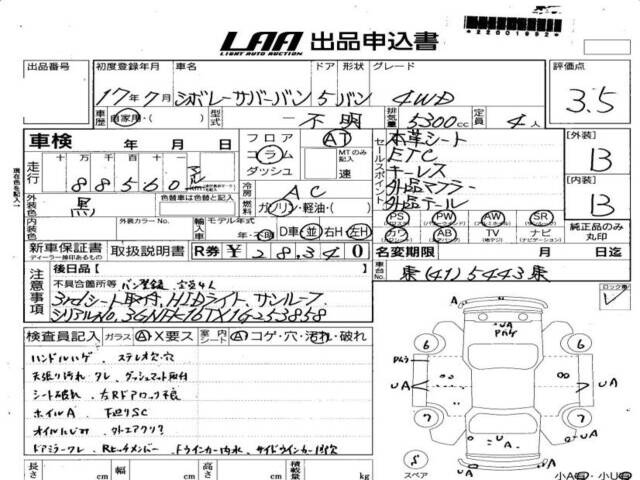 *22001992*
LAA 出品申込書
LIGHT AUTO AUCTION
出品番号 初度登録年月 車名 ドア 形状 グレード 評価点
17年7月 シボレーサバーバン 5 バン 4WD 3.5
車歴 自家用・( ) 型式 不明 排気量 5300cc 定員 4人
車検 年 月 日 フロア AT 本革シート [外装]
走行 十 万 千 百 十 コラム MTのみ記入 ETC B
88560 ダッシュ 速 キーレス
セールスポイント 外品マフラー [内装]
外装色 黒 色替車は色替と記入 冷房 AC 外品テール B
燃料 ガソリン・軽油・( ) PS PW AW SR 純正品のみ丸印
内装色 外装カラーNo. 輸入車 モデル年式 年・不明 D車・並 右H・左H カワ AB TV ナビ
新車保証書 取扱説明書 R券 ¥28,340 名変期限 月 日迄
ディーラー捺印あるもの
車台No. 東(41)5443東
注意事項 後日品[ ] ロック番
不具合箇所等 バン登録 定員4人
3rdシート取付、HIDライト、サンルーフ
シリアルNo, 3GNFK16TX1G253858
検査員記入 ガラス A・X要ス 室内シート A・コゲ・穴・汚れ・破れ
ハンドルハゲ ステレオ欠・穴
天張り汚れ タレ、ダッシュマット取付
シート破れ 右Rドアロック不良
ホイルA 下廻りSC
オイルにじみ
ドアミラークレ、Rヒッチメンバー
UA
6 6
UA UA
7 7
スペア
長さ cm 幅 cm 高さ cm 積載量 kg 小A 小U